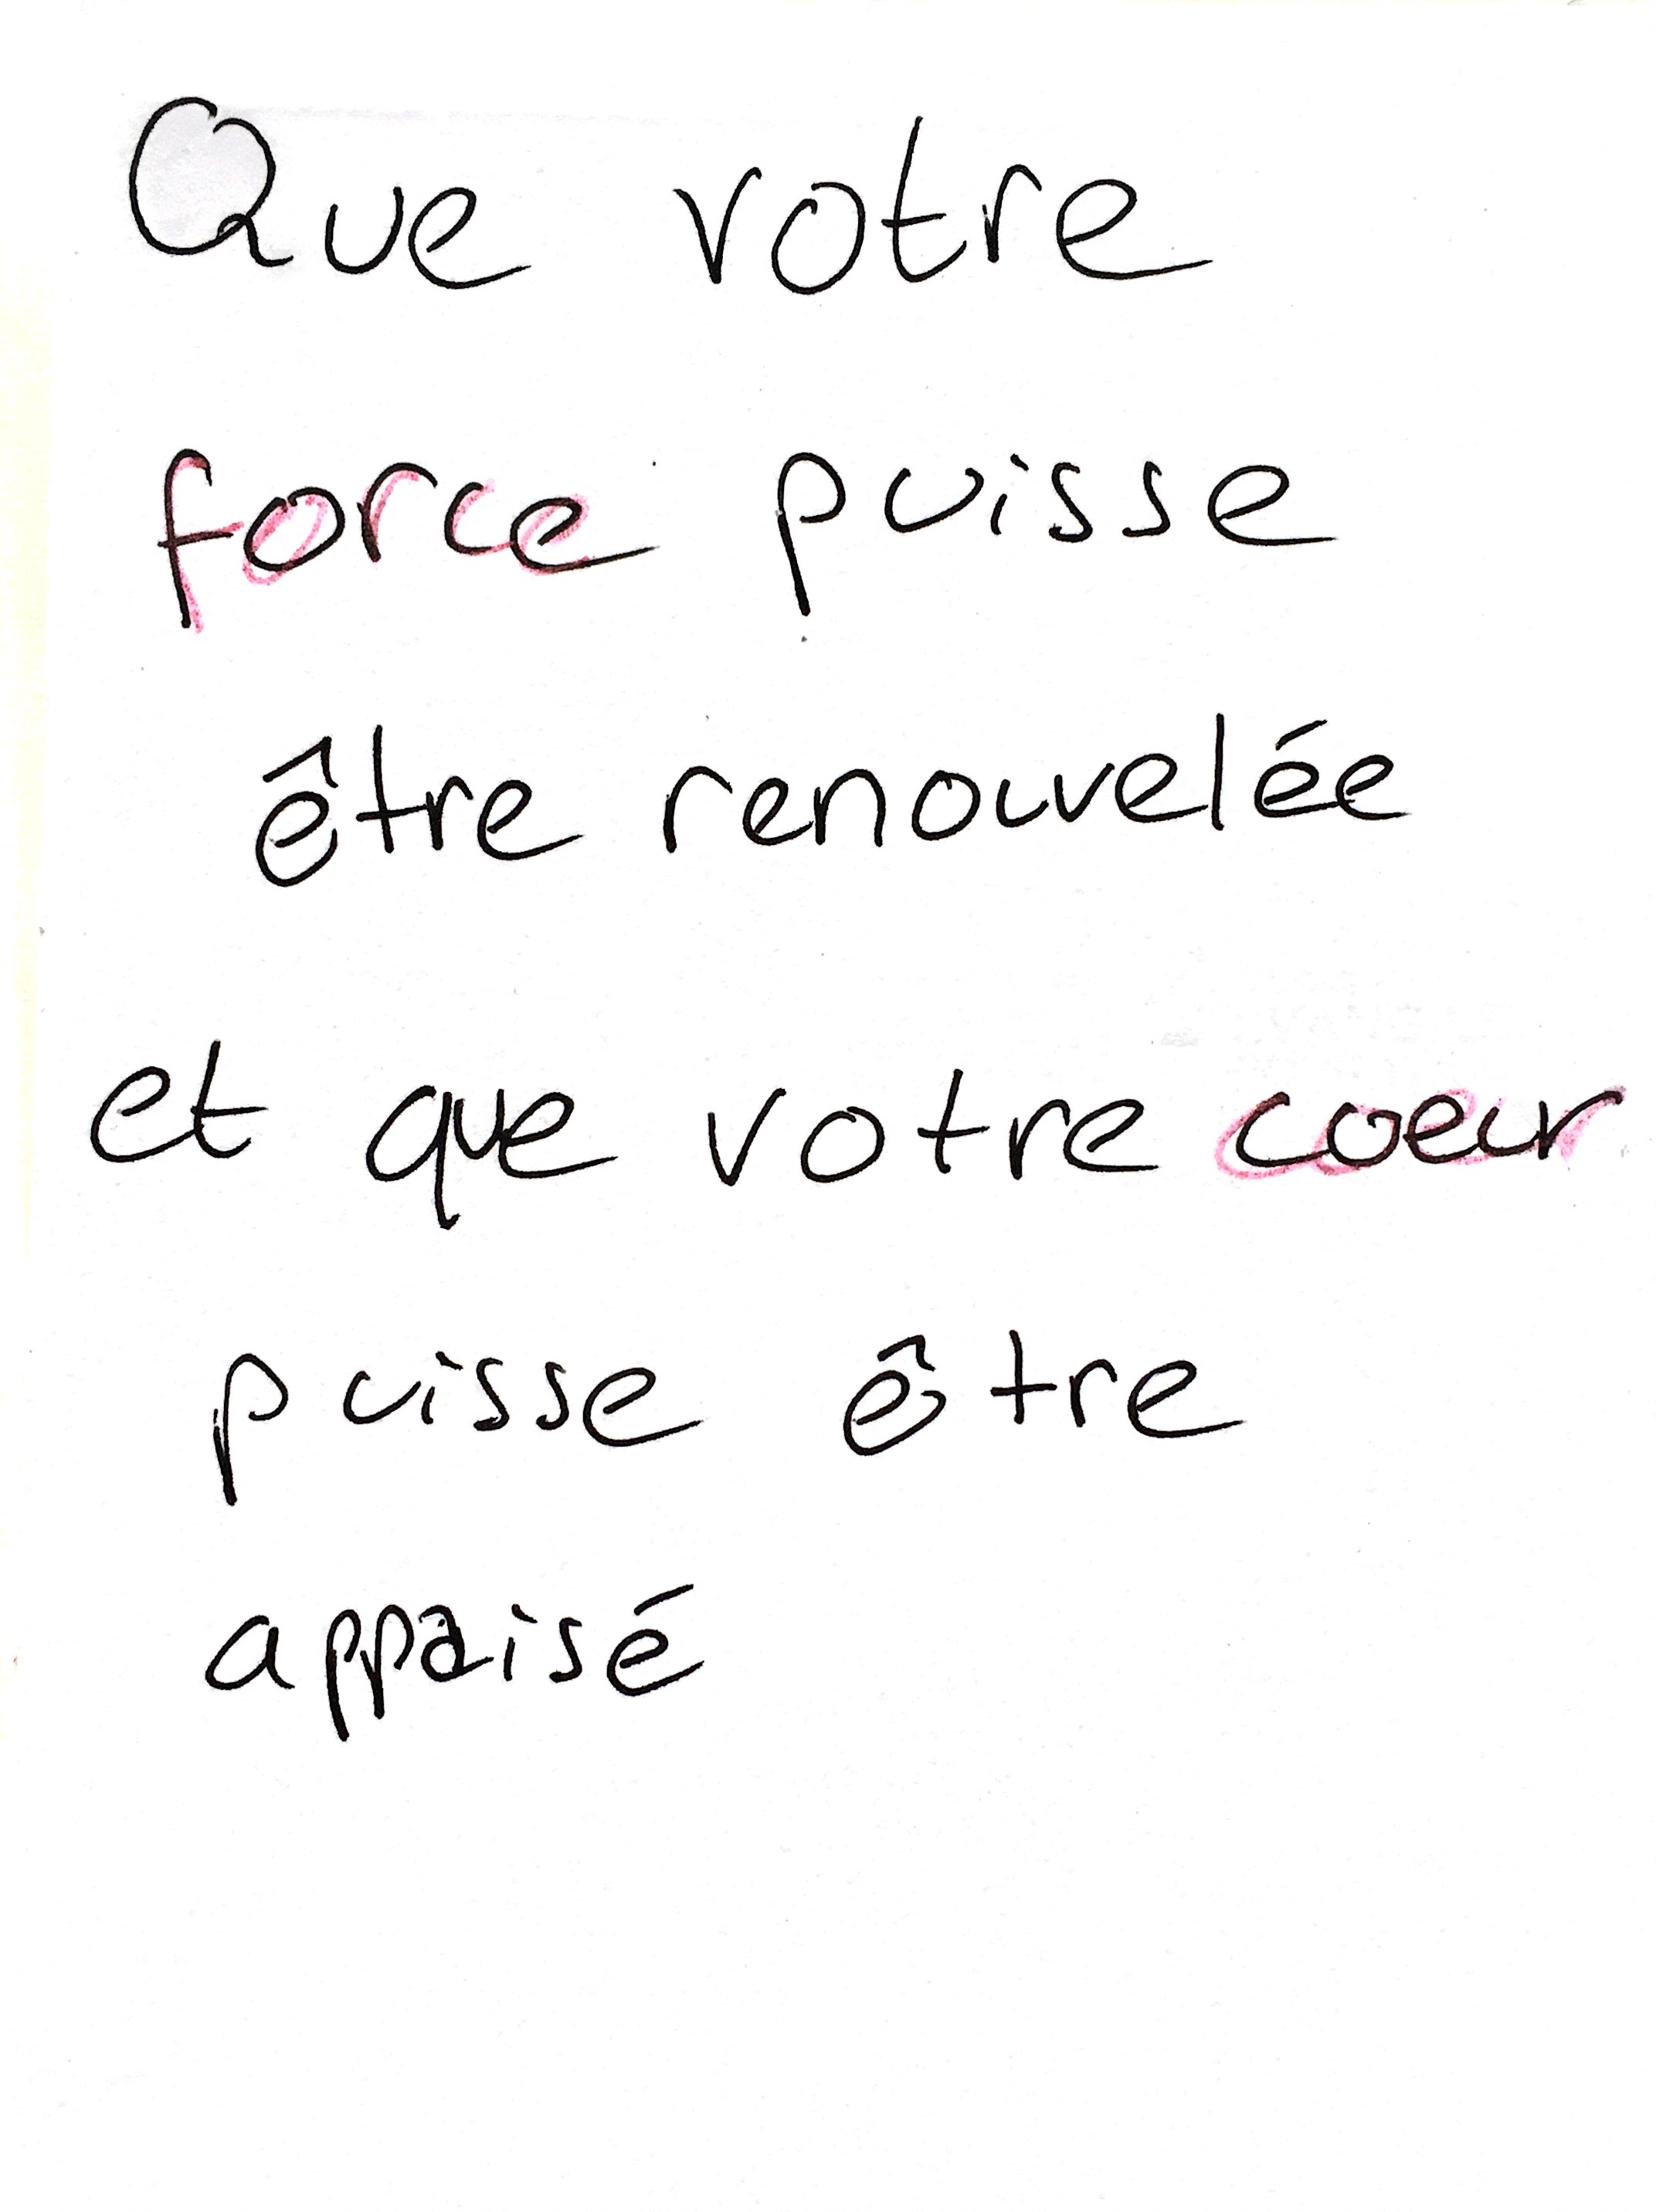 Que votre
force puisse
être renouvelée
et que votre coeur
puisse être
appaisé